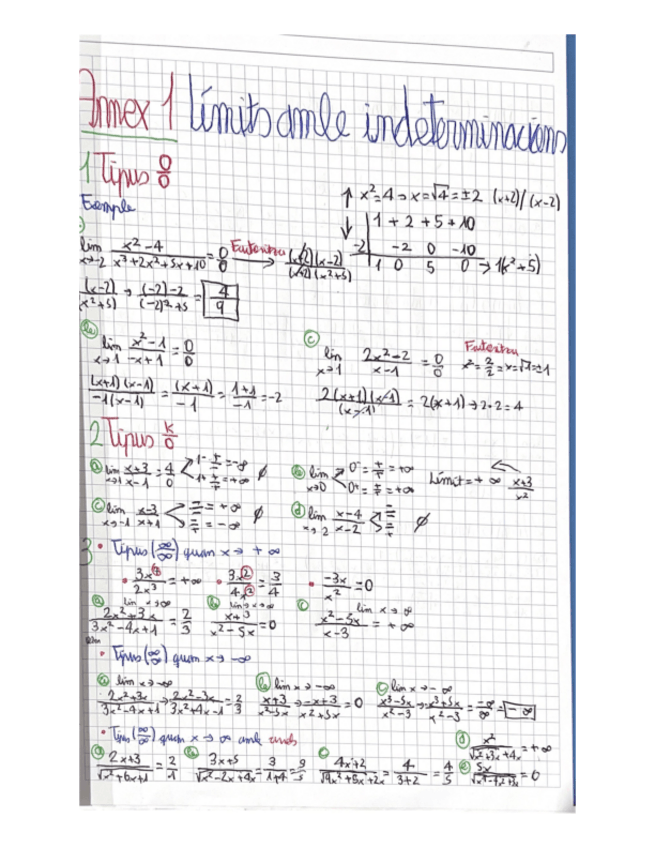 Annex 1 límits amb indeterminacions
1 Tipus 0/0
Exemple
↑ x²=4 → x=√4=±2 (x+2)/(x-2)
↓ 1 + 2 + 5 + 10
-2 -2 0 -10
1 0 5 0 → 1(x²+5)
lim x→-2 x²-4 / x³+2x²+5x+10 = 0/0 → (x+2)(x-2) / (x+2)(x²+5)
(x-2)/(x²+5) → (-2)-2 / (-2)²+5 = 4/9
b lim x→1 x²-1 / -x+1 = 0/0
(x+1)(x-1) / -1(x-1) = (x+1)/-1 = 1+1/-1 = -2
c lim x→1 2x²-2 / x-1 = 0/0
x²=2/2 = x=√1=±1
2(x+1)(x-1) / (x-1) = 2(x+1) → 2·2=4
2 Tipus k/0
a lim x→1 x+3 / x-1 = 4/0 < 1⁻ +/- = -∞ 1⁺ +/+ = +∞ ∅
b lim x→0 < 0⁻ = +/+ = +∞ 0⁺ = +/+ = +∞ Límit = +∞ x+3 / x²
c lim x→-1 x-3 / x+1 < -/- = +∞ -/+ = -∞ ∅
d lim x→2 x-4 / x-2 < -/- -/+ ∅
3 • Tipus (∞/∞) quan x → +∞
• 3x³ / 2x³ = +∞ • 3x² / 4x² = 3/4 • -3x / x² = 0
a lim x→∞ 2x²+3x / 3x²-4x+1 = 2/3
b lim x→∞ x+3 / x²-5x = 0
c lim x→∞ x²-5x / x-3 = +∞
• Tipus (∞/∞) quan x → -∞
a lim x→-∞ 2x²+3x / 3x²-4x+1 → 2x²-3x / 3x²+4x-1 = 2/3
b lim x→-∞ x+3 / x²-5x → -x+3 / x²+5x = 0
c lim x→-∞ x³-5x / x²-3 → -x³+5x / x²-3 = -∞/∞ = -∞
• Tipus (∞/∞) quan x → ∞ amb
a 2x+3 / √x²+6x+1 = 2/1
b 3x+5 / √x²-2x+4x = 3/1+4
c 4x+2 / √9x²+5x+2x = 4/3+2 = 4/5
d x² / √x²+3x+4x = +∞
e 5x = 0